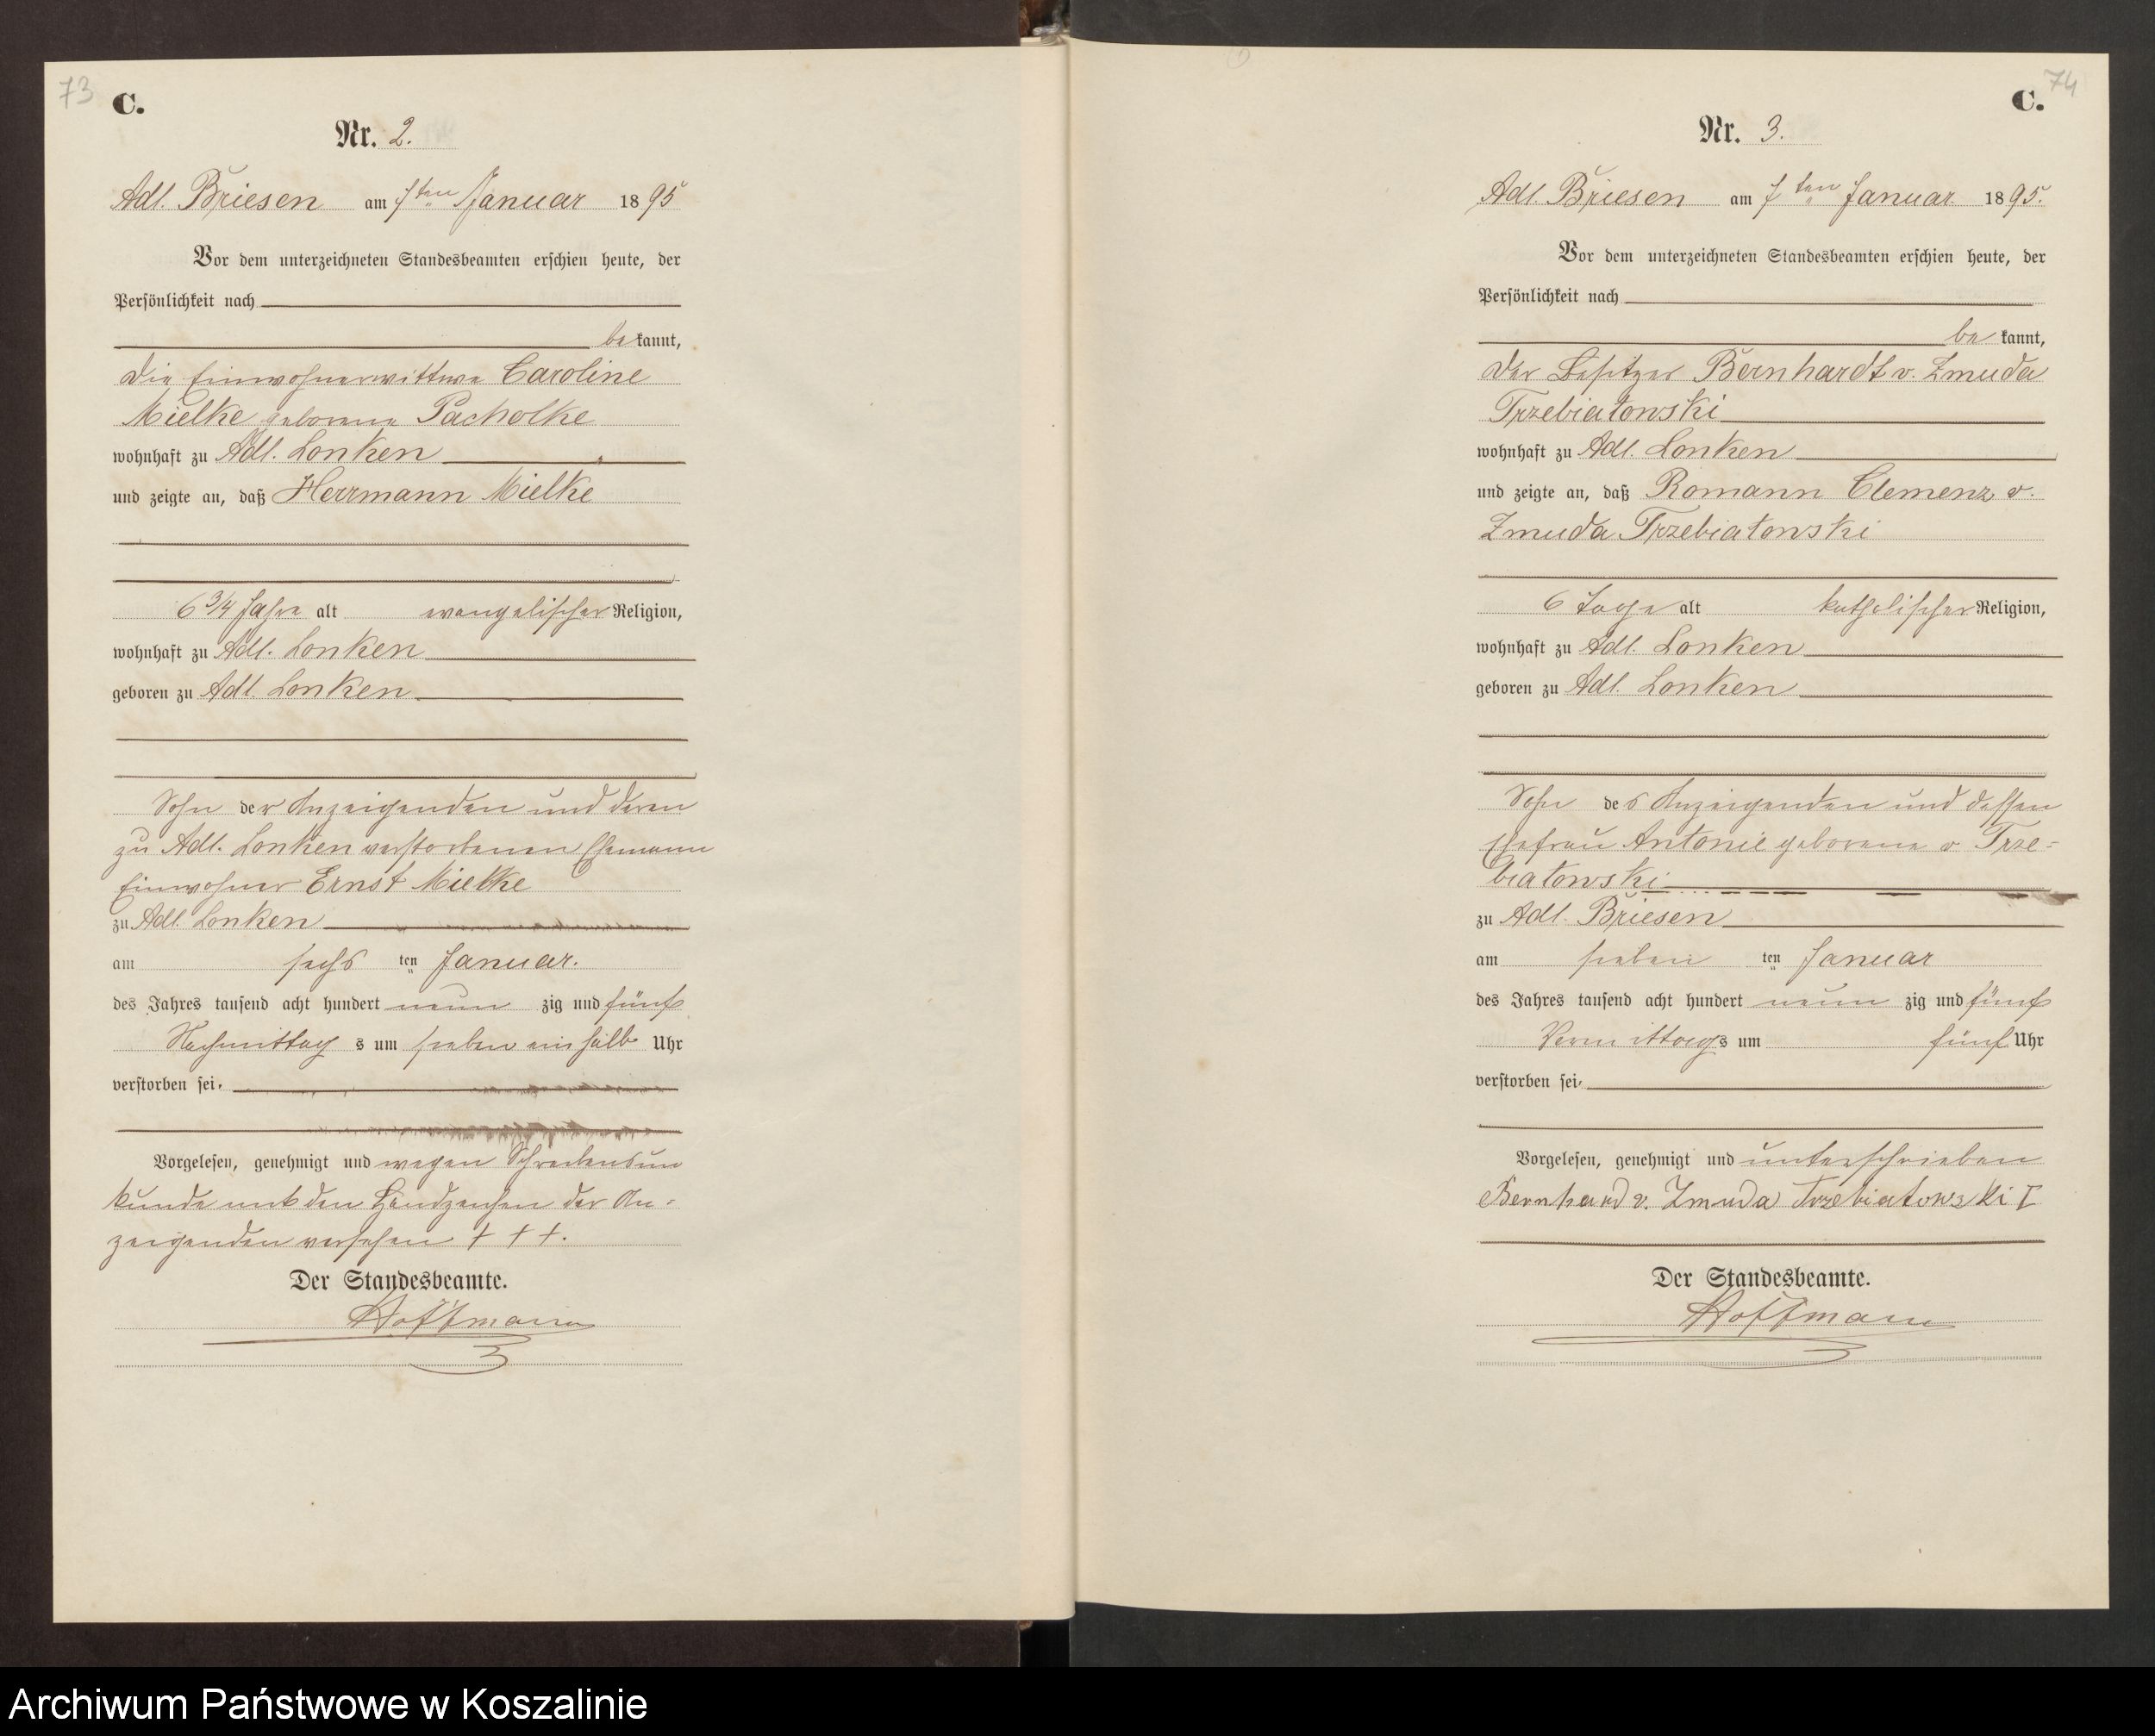 73
C.
Nr. 2.
Adl. Briesen am 7ten Januar 1895
Vor dem unterzeichneten Standesbeamten erschien heute, der
Persönlichkeit nach
bekannt,
die Einwohnerwittwe Caroline
Mielke geborene Pacholke
wohnhaft zu Adl. Lonken
und zeigte an, daß Herrmann Mielke
6 3/4 Jahre alt evangelischer Religion,
wohnhaft zu Adl. Lonken
geboren zu Adl. Lonken
Sohn der Anzeigenden und deren
zu Adl. Lonken verstorbenen Ehemann
Einwohner Ernst Mielke
zu Adl. Lonken
am sechsten Januar.
des Jahres tausend acht hundert neunzig und fünf
Nachmittags um sieben ein halb Uhr
verstorben sei.
Vorgelesen, genehmigt und wegen Schreibensun
kunde mit den Handzeichen der An=
zeigenden versehen + + +.
Der Standesbeamte.
Hoffmann
74
C.
Nr. 3.
Adl. Briesen am 7ten Januar 1895.
Vor dem unterzeichneten Standesbeamten erschien heute, der
Persönlichkeit nach
bekannt,
der Besitzer Bernhardt v. Zmuda
Trzebiatowski
wohnhaft zu Adl. Lonken
und zeigte an, daß Romann Clemenz v.
Zmuda Trzebiatowski
6 Tage alt katholischer Religion,
wohnhaft zu Adl. Lonken
geboren zu Adl. Lonken
Sohn des Anzeigenden und dessen
Ehefrau Antonie geborene v Trze=
biatowski
zu Adl. Briesen
am siebenten Januar
des Jahres tausend acht hundert neunzig und fünf
Vormittags um fünf Uhr
verstorben sei.
Vorgelesen, genehmigt und unterschrieben
Bernhard v. Zmuda Trzebiatowski I
Der Standesbeamte.
Hoffmann
Archiwum Państwowe w Koszalinie